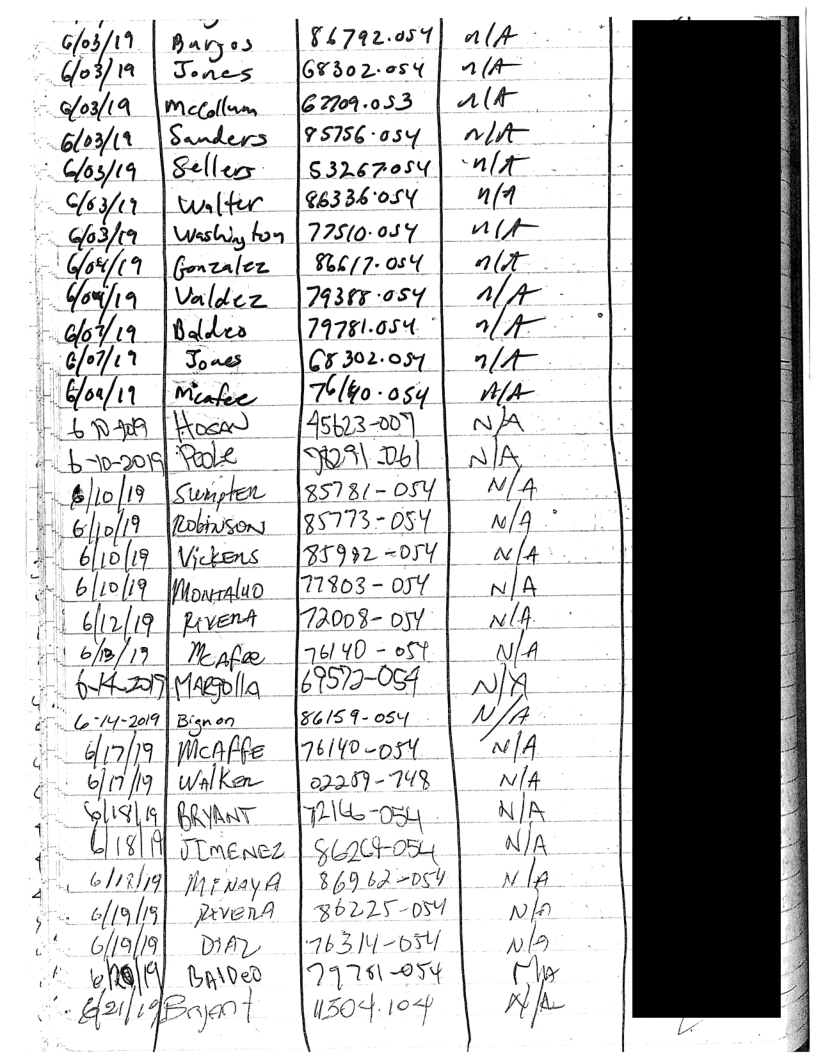 6/03/19 Burgos 86792.054 n/A
6/03/19 Jones 68302.054 n/A
6/03/19 McCollum 67709.053 n/A
6/03/19 Sanders 85756.054 n/A
6/03/19 Sellers 53267.054 n/A
6/03/19 Walter 86336.054 n/A
6/03/19 Washington 77510.054 n/A
6/04/19 Gonzalez 86617.054 n/A
6/04/19 Valdez 79388.054 n/A
6/07/19 Baldeo 79781.054 n/A
6/07/19 Jones 68302.054 n/A
6/09/19 Mcafee 76140.054 N/A
6-10-2019 HOSAN 45623-007 N/A
6-10-2019 Poole N/A
6/10/19 Sumpter 85781-054 N/A
6/10/19 Robinson 85773-054 N/A
6/10/19 Vickens 85982-054 N/A
6/10/19 MONTALVO 77803-054 N/A
6/12/19 RIVERA 72008-054 N/A
6/13/19 McAfee 76140-054 N/A
6-14-2019 MARGOlla 69572-054 N/A
6-14-2019 Bignon 86159-054 N/A
6/17/19 McAFFE 76140-054 N/A
6/17/19 WALKER 02259-748 N/A
6/18/19 BRYANT 72166-054 N/A
6/18/19 JIMENEZ 86264-054 N/A
6/18/19 MINAYA 86962-054 N/A
6/19/19 RIVERA 86225-054 N/A
6/19/19 DIAZ 76314-054 N/A
6/20/19 BALDEO 79781-054 N/A
6/21/19 Bryant 11504.104 N/A